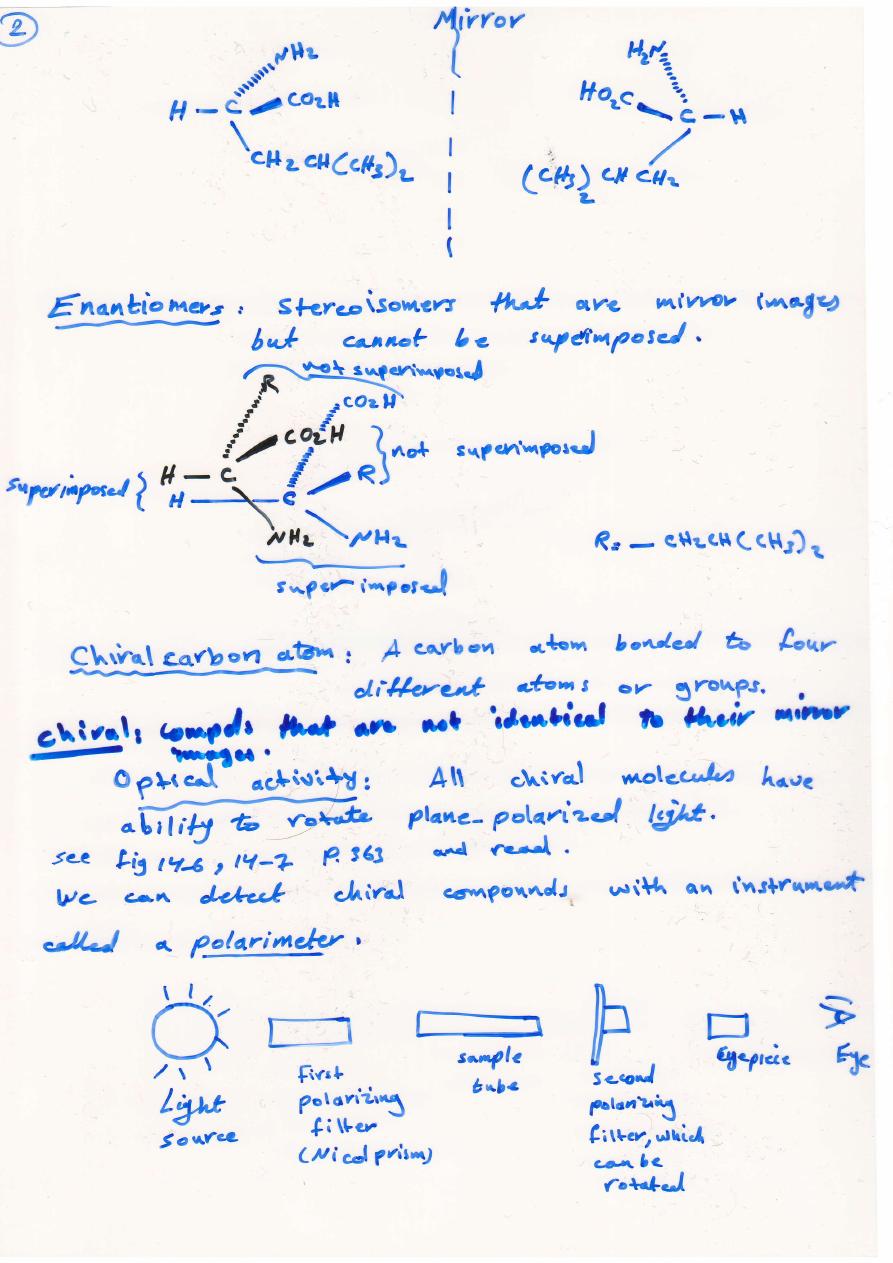 2
Mirror
NH2
H2N
H - C CO2H
HO2C C - H
CH2 CH(CH3)2
(CH3)2 CH CH2
Enantiomers: Stereoisomers that are mirror images
but cannot be supeimposed.
not superimposed
R
CO2H
CO2H
not superimposed
H - C
R
superimposed
H - C
NH2 NH2
R= - CH2CH(CH3)2
superimposed
Chiral carbon atom: A carbon atom bonded to four
different atoms or groups.
chiral: compds that are not identical to their mirror
images.
Optical activity: All chiral molecules have
ability to rotate plane-polarized light.
see fig 14-6, 14-7 P. 363 and read.
We can detect chiral compounds with an instrument
called a polarimeter.
Light
source
First
polarizing
filter
(Nicol prism)
sample
tube
second
polarizing
filter, which
can be
rotated
Eyepicie
Eye